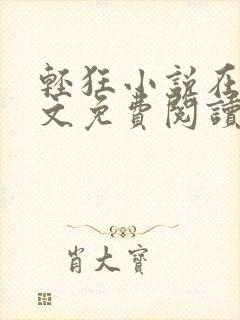 輕狂小說在
文免費閱讀
肖大寶